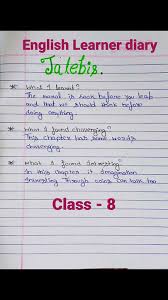 English Learner diary
Jalebis.
* What I learned?
The moral is look before you leap
and that we should think before
doing anything.
* What I found challenging?
This chapter has some words
challenging.
* What I found interesting?
In this chapter it imagination
interesting through coins can talk too
Class - 8